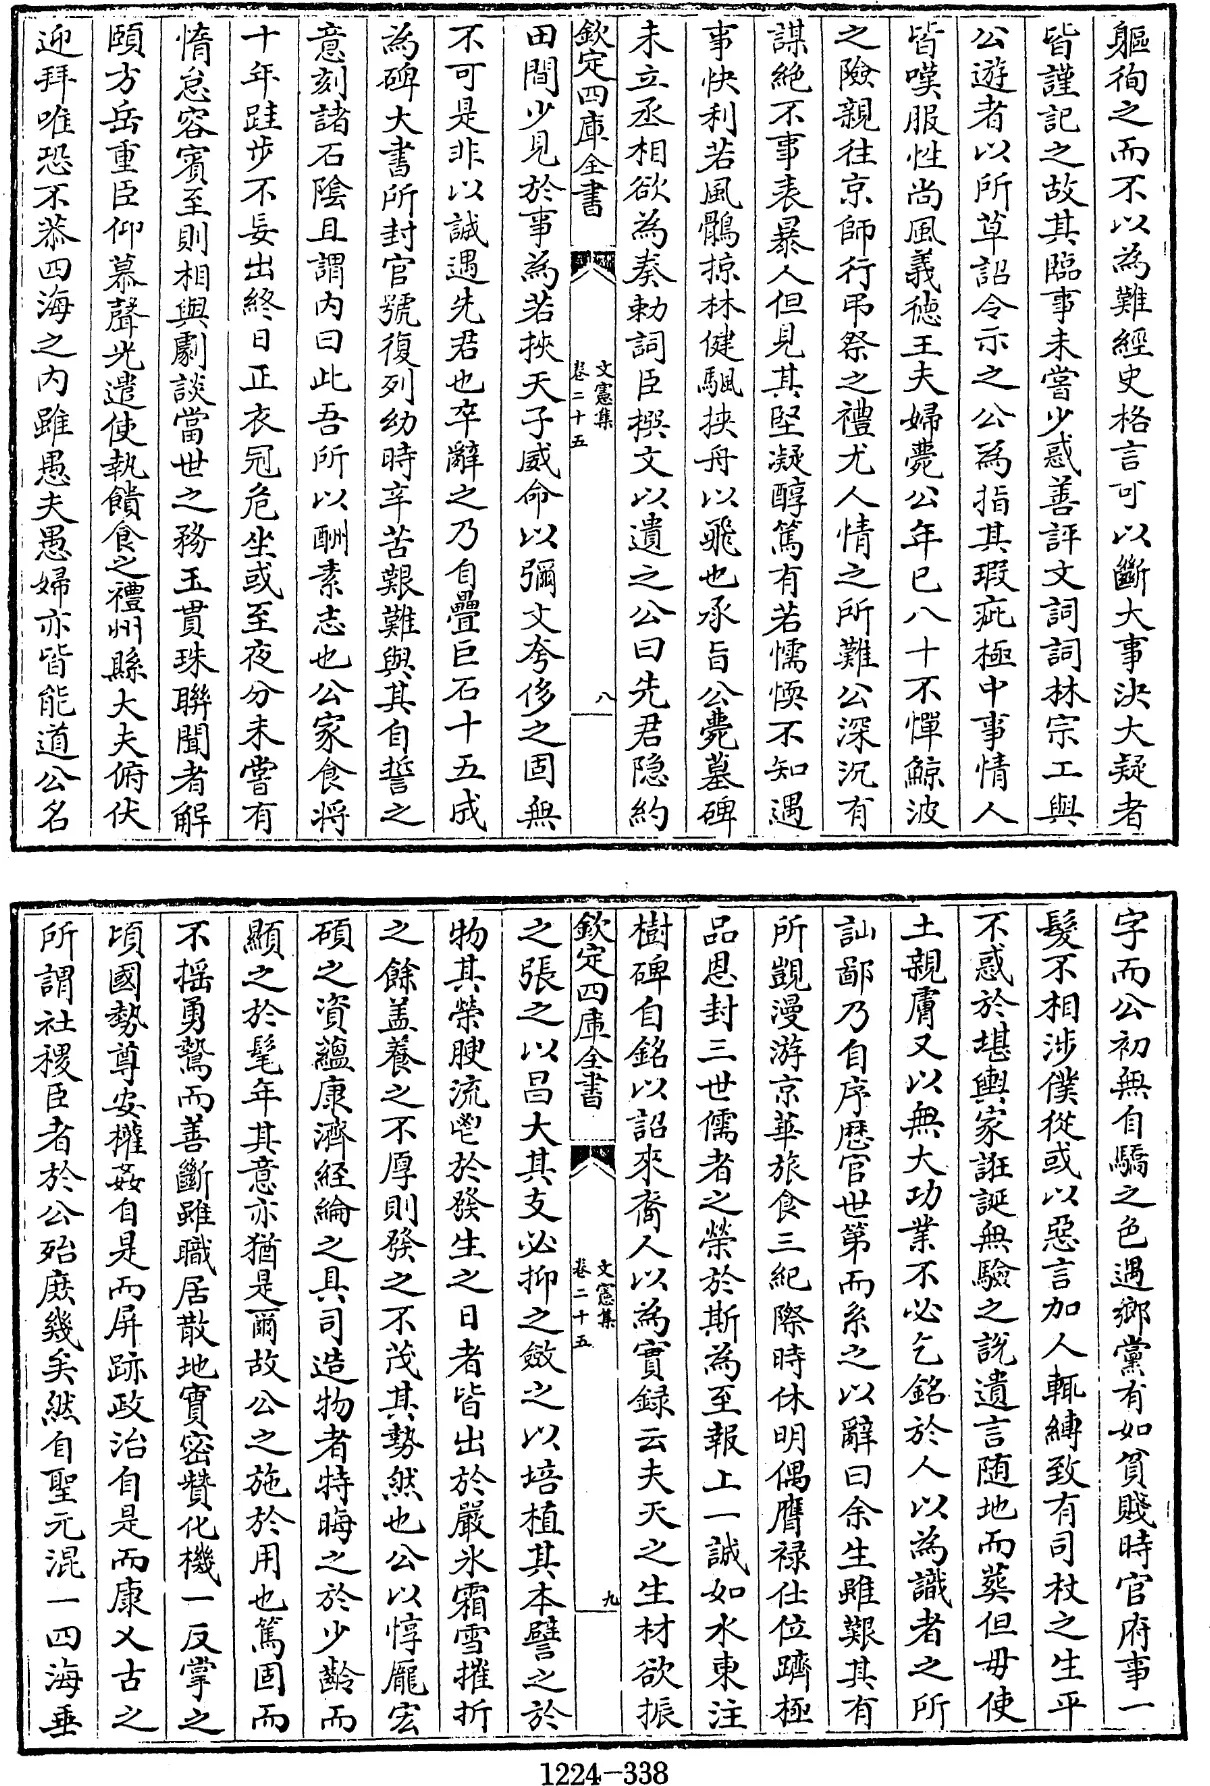 軀徇之而不以為難經史格言可以斷大事決大疑者
皆謹記之故其臨事未嘗少惑善評文詞詞林宗工與
公遊者以所草詔令示之公為指其瑕疵極中事情人
皆嘆服性尚風義德王夫婦薨公年已八十不憚鯨波
之險親往京師行弔祭之禮尤人情之所難公深沉有
謀絶不事表暴人但見其堅凝醇篤有若懦愞不知遇
事快利若風鶻掠林健颿挾舟以飛也承旨公薨墓碑
未立丞相欲為奏勅詞臣撰文以遺之公曰先君隐約
欽定四庫全書
文憲集
卷二十五
八
田間少見於事為若挾天子威命以彌文夸侈之固無
不可是非以誠遇先君也卒辭之乃自疊巨石十五成
為碑大書所封官號復列幼時辛苦艱難與其自誓之
意刻諸石陰且謂内曰此吾所以酬素志也公家食将
十年跬步不妄出終日正衣冠危坐或至夜分未嘗有
惰怠容賓至則相與劇談當世之務玉貫珠聯聞者解
頤方岳重臣仰慕聲光遣使執饋食之禮州縣大夫俯伏
迎拜唯恐不恭四海之内雖愚夫愚婦亦皆能道公名
字而公初無自驕之色遇鄉黨有如貧賤時官府事一
髮不相涉僕從或以惡言加人輒縛致有司杖之生平
不惑於堪輿家誑誕無驗之說遺言随地而葬但毋使
土親膚又以無大功業不必乞銘於人以為識者之所
訕鄙乃自序歴官世第而系之以辭曰余生雖艱其有
所覬漫游京華旅食三紀際時休明偶膺禄仕位躋極
品恩封三世儒者之榮於斯為至報上一誠如水東注
樹碑自銘以詔來裔人以為實録云夫天之生材欲振
欽定四庫全書
文憲集
卷二十五
九
之張之以昌大其支必抑之斂之以培植其本譬之於
物其榮腴流鬯於發生之日者皆出於嚴氷霜雪摧折
之餘盖養之不厚則發之不茂其勢然也公以惇龎宏
碩之資藴康濟經綸之具司造物者特晦之於少齡而
顯之於髦年其意亦猶是爾故公之施於用也篤固而
不揺勇鷙而善斷雖職居散地實密贊化機一反掌之
頃國勢尊安權姦自是而屏跡政治自是而康乂古之
所謂社稷臣者於公殆庶幾矣然自聖元混一四海垂
1224-338